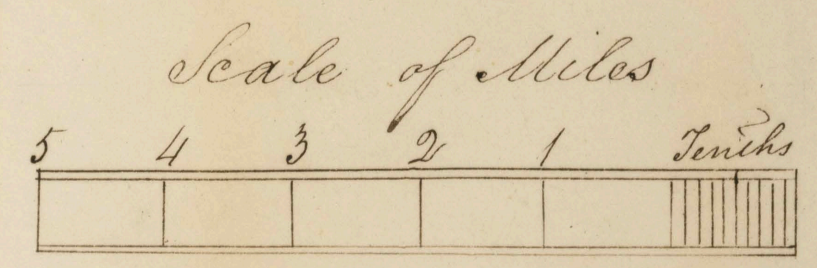 Scale of Miles
5 4 3 2 1 Tenths